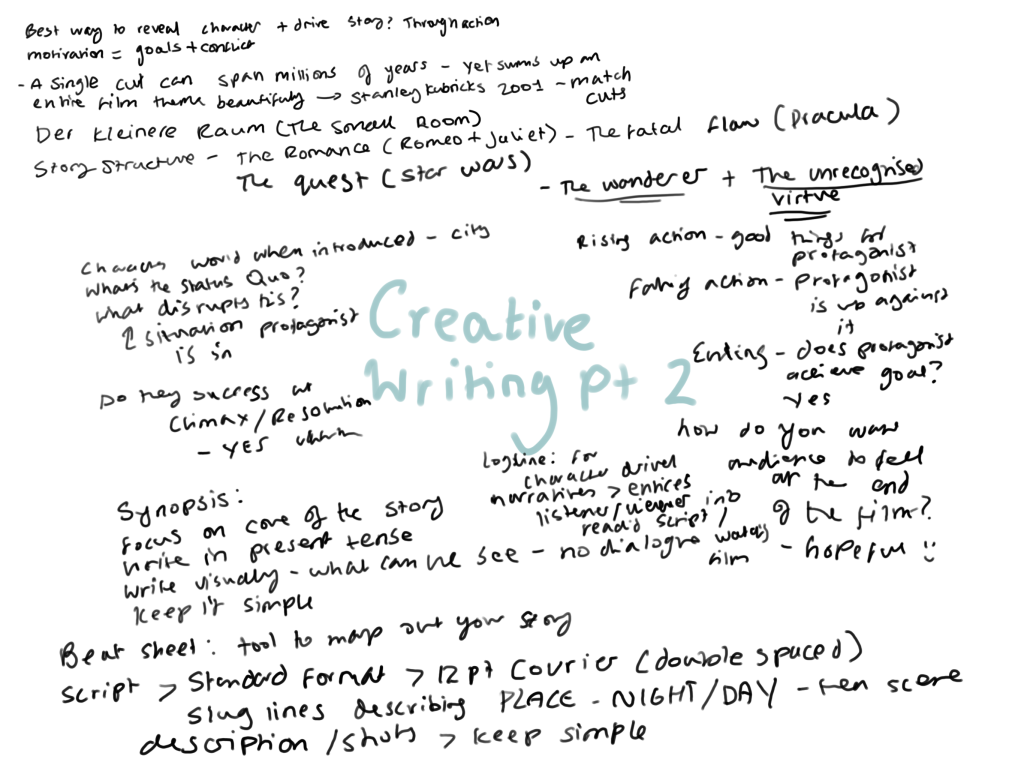 Best way to reveal character + drive story? Through action
motivation = goals + conflict
- A single cut can span millions of years - yet sums up an
entire film theme beautifully → Stanley Kubricks 2001 - match
cuts
Der Kleinere Raum (The Small Room)
Story Structure - The Romance (Romeo + Juliet) - The Fatal Flaw (Dracula)
The quest (Star Wars)
- The wanderer + The unrecognised
virtue
Characters world when introduced - city
Whats the Status Quo?
What disrupts this?
↑ situation protagonist
is in
Do they success at
Climax/Resolution
- YES
Rising action - good things for
protagonist
Falling action - protagonist
is up against
it
Ending - does protagonist
achieve goal?
Yes
how do you want
audience to feel
at the end
of the film?
- hopeful
Creative
Writing pt 2
Logline: For
character driven
narratives > entices
listener/viewer into
read'd script/
watch's
film
Synopsis:
Focus on core of the story
Write in present tense
Write visually - what can we see - no dialogue
Keep it simple
Beat sheet: tool to map out your story
Script > Standard Format > 12 pt Courier (double spaced)
Slug lines describing PLACE - NIGHT/DAY - then scene
description / shots > Keep simple